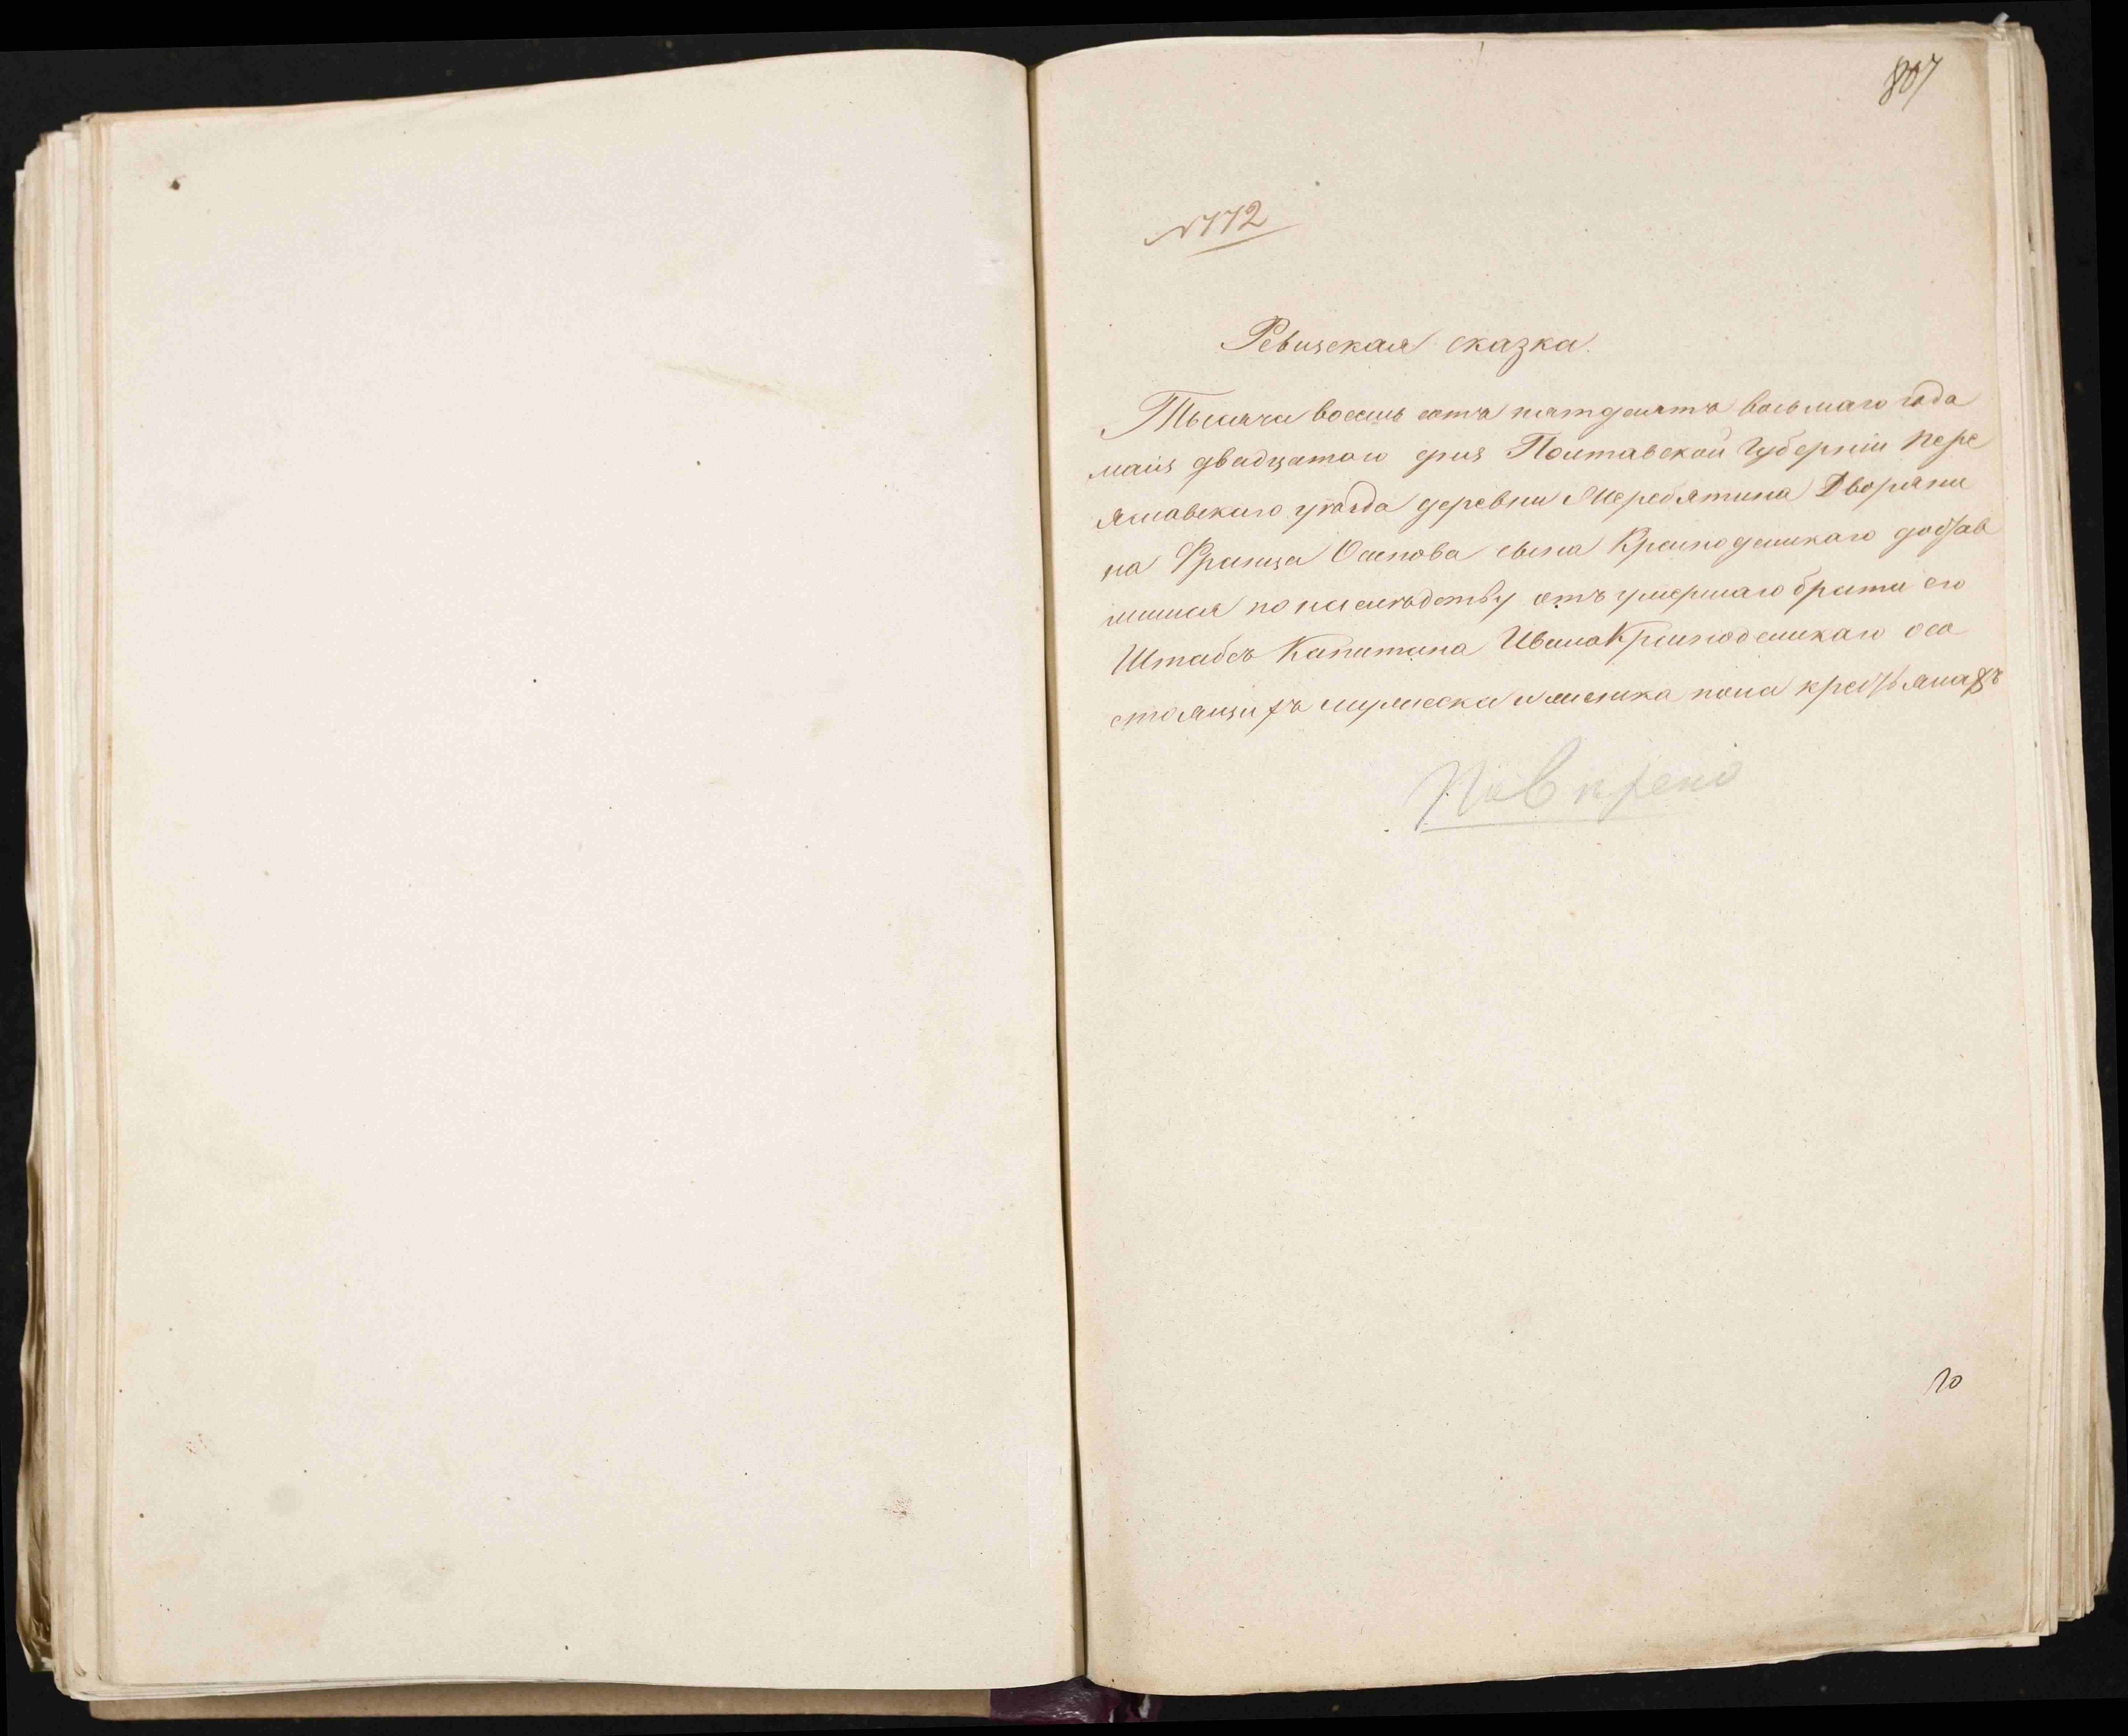 807
№ 772
Ревизская сказка.
Тысяча восемь сотъ пятдесятъ восьмаго года
маія двадцатого дня Полтавской Губерніи Пере
яславского уѣзда деревни Жеребятина Дворяни
на Франца Осипова сына достав
шихся по наслѣдству отъ умершаго брата его
Штабсъ Капитана Ивана осо
стоящихъ мужеска и женска пола крестьянахъ
Повѣрено
10